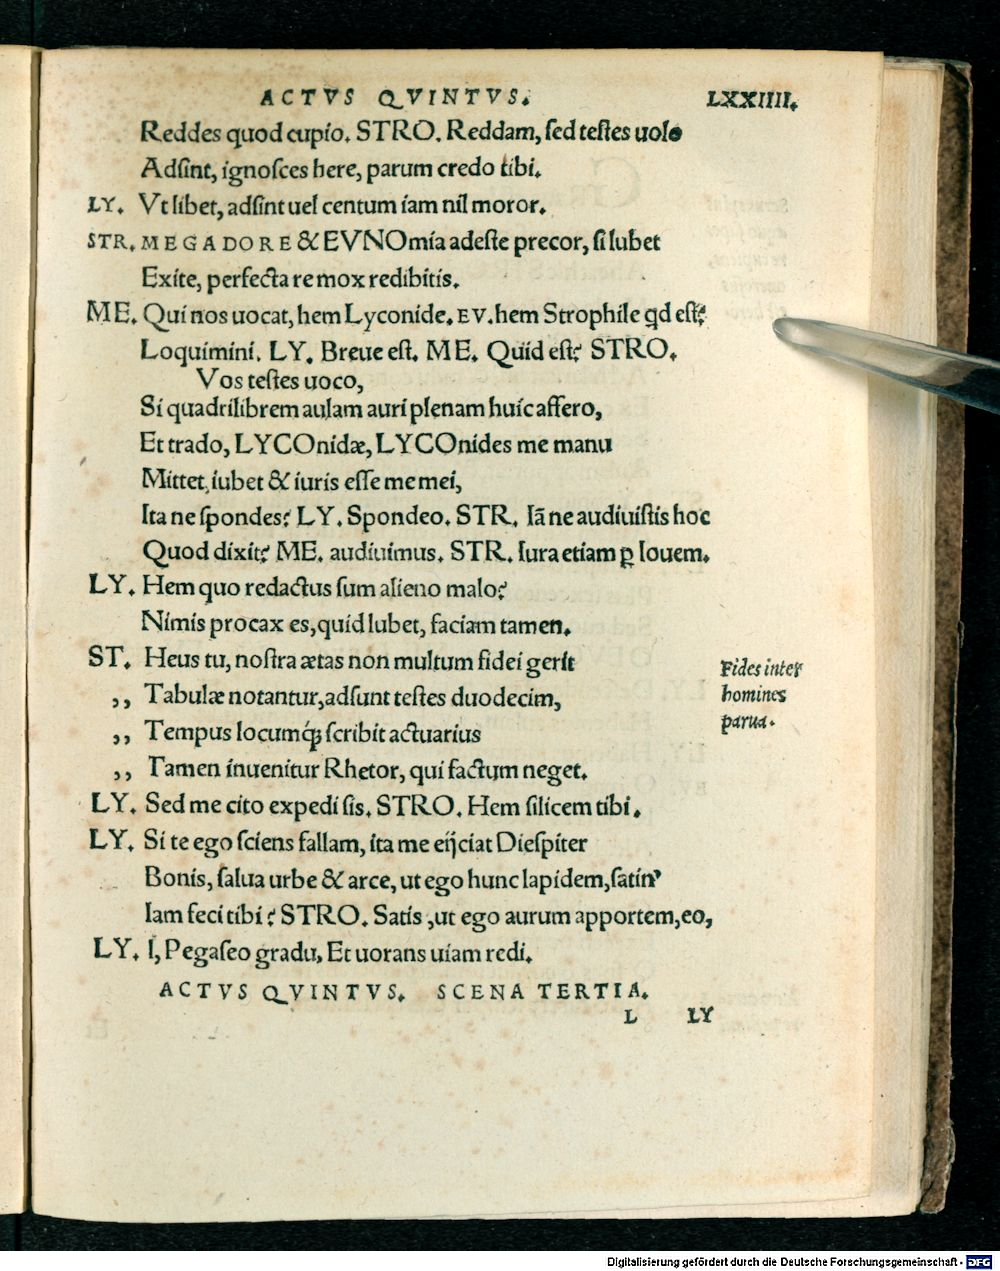 ACTVS QVINTVS. LXXIIII.
Reddes quod cupio. STRO. Reddam, sed testes uolo
Adsint, ignosces here, parum credo tibi.
LY. Vt libet, adsint uel centum iam nil moror.
STR. MEGADORE & EVNOmia adeste precor, si lubet
Exite, perfecta re mox redibitis.
ME. Qui nos uocat, hem Lyconide. EV. hem Strophile qd est?
Loquimini. LY. Breue est. ME. Quid est? STRO.
Vos testes uoco,
Si quadrilibrem aulam auri plenam huic affero,
Et trado, LYCOnidæ, LYCOnides me manu
Mittet, iubet & iuris esse me mei,
Ita ne spondes? LY. Spondeo. STR. Iā ne audiuistis hoc
Quod dixit? ME. audiuimus. STR. Iura etiam ꝑ Iouem.
LY. Hem quo redactus sum alieno malo?
Nimis procax es, quid lubet, faciam tamen.
ST. Heus tu, nostra ætas non multum fidei gerit
Fides inter
homines
parua.
,, Tabulæ notantur, adsunt testes duodecim,
,, Tempus locumq́; scribit actuarius
,, Tamen inuenitur Rhetor, qui factum neget.
LY. Sed me cito expedi sis. STRO. Hem silicem tibi.
LY. Si te ego sciens fallam, ita me eijciat Diespiter
Bonis, salua urbe & arce, ut ego hunc lapidem, satin'
Iam feci tibi? STRO. Satis, ut ego aurum apportem, eo,
LY. I, Pegaseo gradu, Et uorans uiam redi.
ACTVS QVINTVS. SCENA TERTIA.
L LY
Digitalisierung gefördert durch die Deutsche Forschungsgemeinschaft - DFG